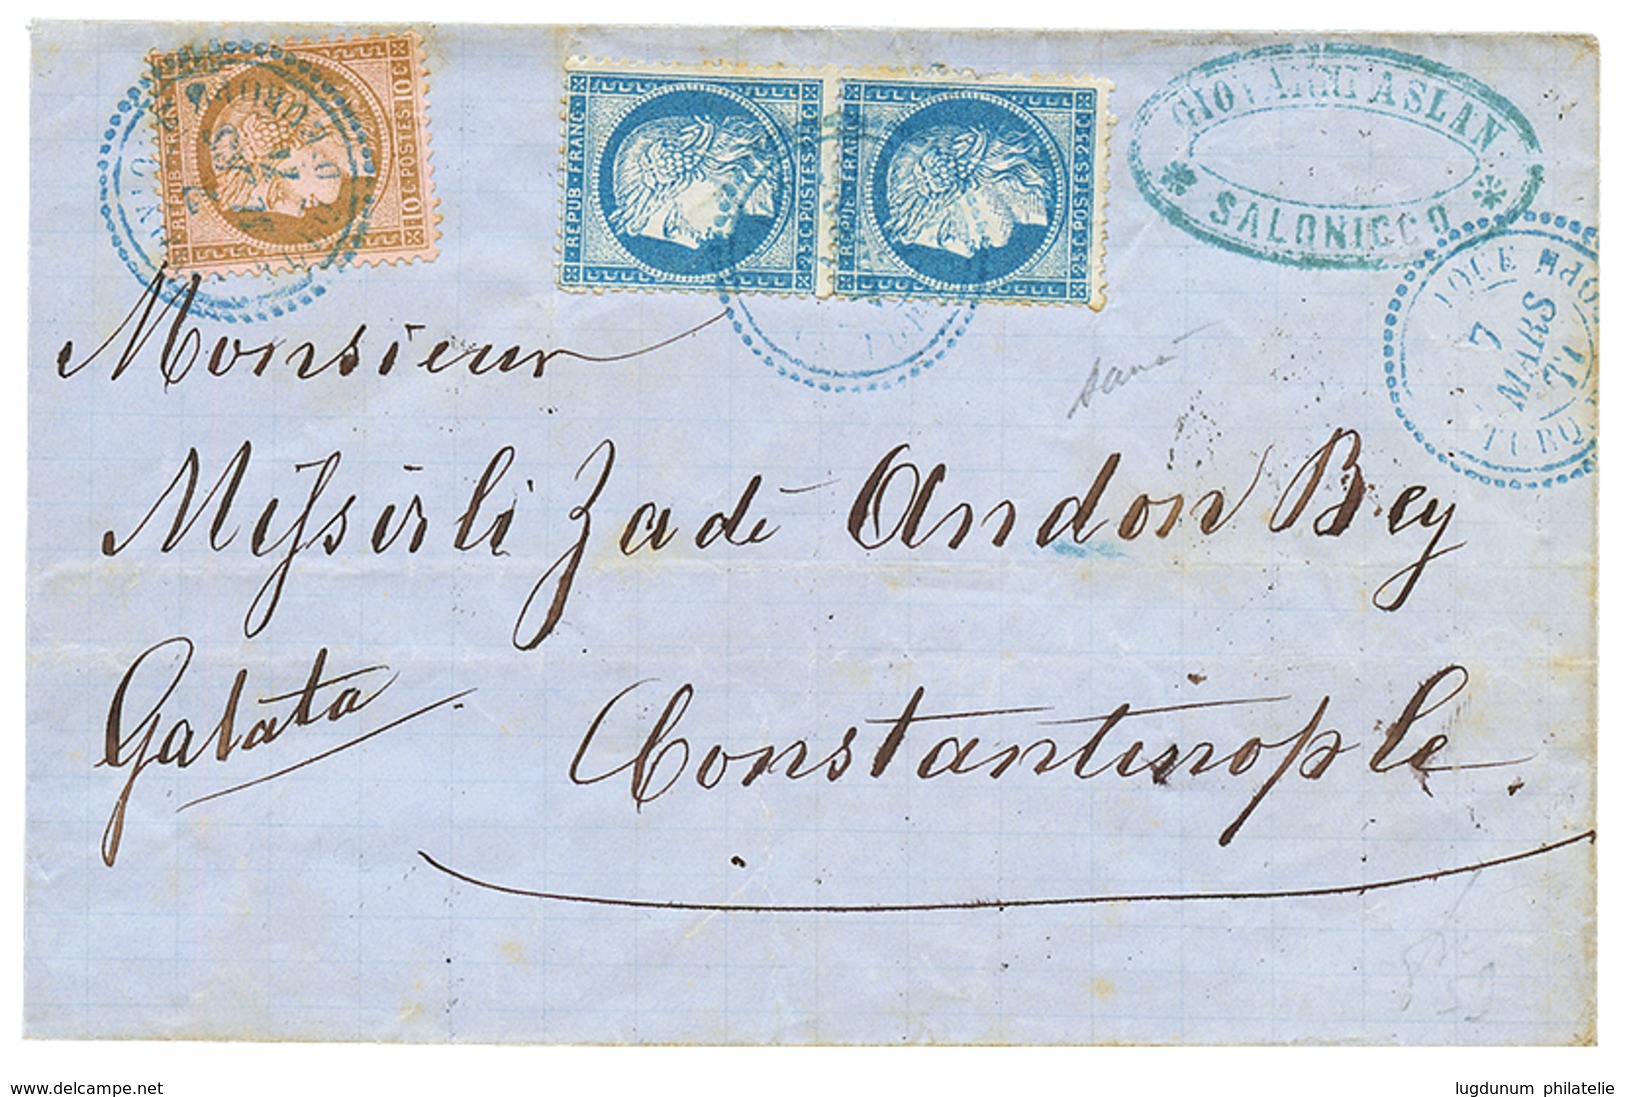 10 C. POSTES 10 C.
REPUB. FRANC.
REPUB. FRANC.
25 C. POSTES 25 C.
REPUB. FRANC.
25 C. POSTES 25 C.
GIOVANNI ASLAN
SALONICCO
7
MARS
TURQ
Monsieur
Missirli Zadé Andon Bey
Galata
Constantinople.
www.delcampe.net
lugdunum philatelie